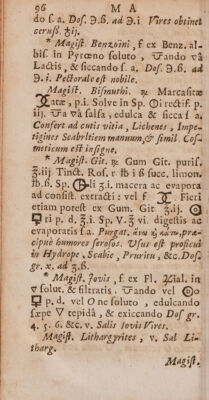 96 M A
do s. a. Dos. ℈.ß. ad ℈.i. Vires obtinet
ceruss. ʒij.
* Magist. Benzoini, f. ex Benz. albiss.
in Pyrœno soluto, ando và
Lactis, & siccando s. a. Dos. ℈.ß. ad
℈.i. Pectorale est nobile.
* Magist. Bismuthi. ♃ Marcasitæ
atæ, p.i. Solve in Sp. ⦶i rectif. p.
iij. a và salsa, edulca & sicca s. a.
Confert ad cutis vitia, Lichenes, Impetigines
Scabritiem manuum, & simil. Cosmeticum
est insigne.
* Magist. Git. ♃ Gum Git. puriss.
℥.iij. Tinct. Ros. r ℔ i ß succ. limon.
℔.ß. Sp. li ʒ.i. macera ac evapora
ad consist. extracti: vel f. Fieri
etiam potest ex Gum. Git ℥ij. ⦶
ri p. d. ʒ.i. Sp. V. ℥ vi digestis ac
evaporatis s.a. Purgat. ἄνω κὶ κάτω, præcipuè
humores serosos. Usus est proficui
in Hydrope, Scabie, Pruritu, &c. Dos.
gr. x. ad ʒ.ß.
* Magist. Jovis, f. ex Fl. ial. in
▽ solut. & filtratis. ando vel
p. d. vel O ne soluto, edulcando
sæpe ▽ tepidâ, & exiccando Dos gr.
4. 5. 6. &c. v. Salis Jovis Vires.
Magist. Lithargyrites, v. Sal Litharg.
Magist.